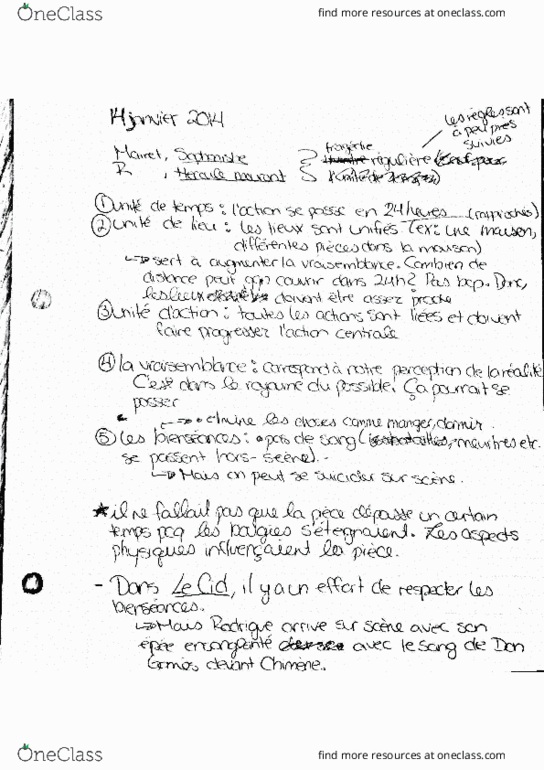 OneClass
find more resources at oneclass.com
14 janvier 2014
les règles sont
à peu près
suivies
Mairet, Sophonisbe
tragédie
régulière
R , Hercule mourant
① unité de temps : l'action se passe en 24 heures (rapprochés)
② unité de lieu : les lieux sont unifiés (ex: une maison,
différentes pièces dans la maison)
↳ sert à augmenter la vraisemblance. Combien de
distance peut qqn couvrir dans 24h? Pas bcp. Donc,
les lieux doivent être assez proche
③ unité d'action : toutes les actions sont liées et doivent
faire progresser l'action centrale
④ la vraisemblance : correspond à notre perception de la réalité
C'est dans le royaume du possible. Ça pourrait se
passer
les choses comme manger, dormir.
⑤ Les bienséances : • pas de sang (les batailles, meurtres etc.
se passent hors-scène).
↳ Mais on peut se suicider sur scène.
★ il ne fallait pas que la pièce dépasse un certain
temps pcq les bougies s'éteignaient. Les aspects
physiques influençaient la pièce.
- Dans Le Cid, il y a un effort de respecter les
bienséances.
↳ Mais Rodrigue arrive sur scène avec son
épée ensanglanté avec le sang de Don
Gomès devant Chimène.
OneClass
find more resources at oneclass.com